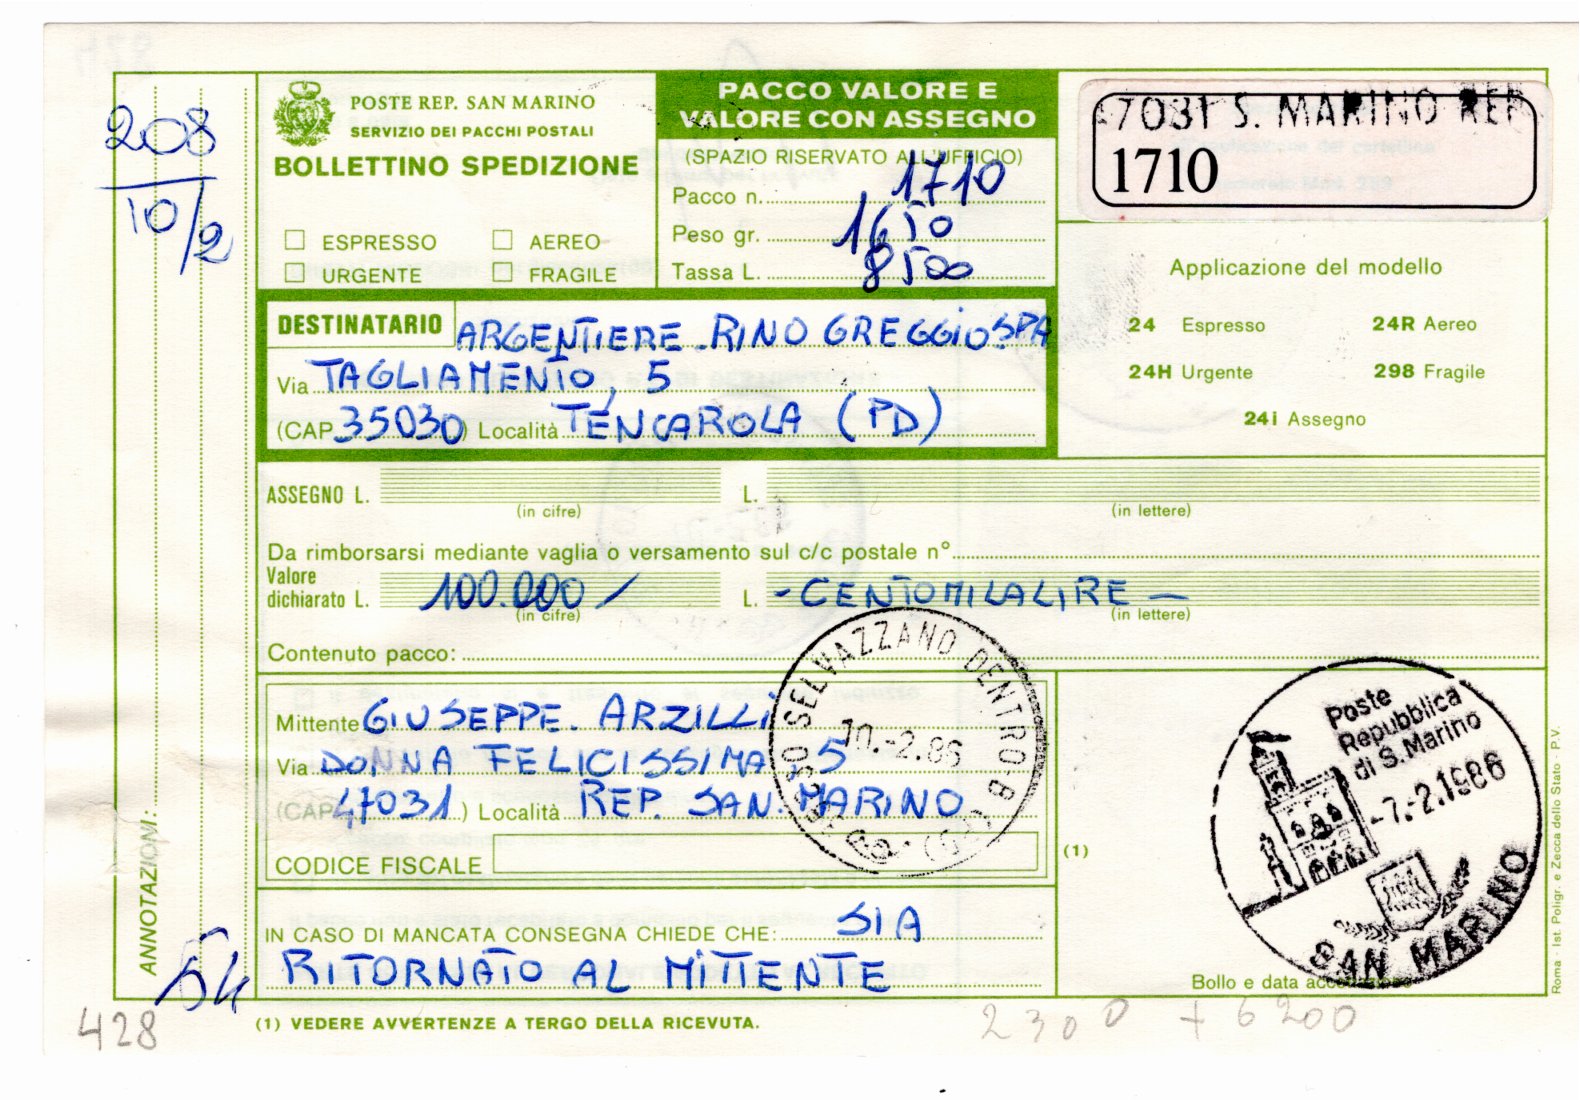 208
10/2
POSTE REP. SAN MARINO
SERVIZIO DEI PACCHI POSTALI
BOLLETTINO SPEDIZIONE
ESPRESSO
AEREO
URGENTE
FRAGILE
PACCO VALORE E
VALORE CON ASSEGNO
(SPAZIO RISERVATO ALL'UFFICIO)
Pacco n. 1710
Peso gr. 1650
Tassa L. 8500
47031 S. MARINO REP
1710
Applicazione del modello
24 Espresso
24R Aereo
24H Urgente
298 Fragile
24i Assegno
DESTINATARIO ARGENTIERE RINO GREGGIO SPA
Via TAGLIAMENTO, 5
(CAP 35030) Località TENCAROLA (PD)
ASSEGNO L. L.
(in cifre) (in lettere)
Da rimborsarsi mediante vaglia o versamento sul c/c postale n°
Valore
dichiarato L. 100.000/ L. - CENTOMILALIRE -
(in cifre) (in lettere)
Contenuto pacco:
Mittente GIUSEPPE ARZILLI
Via DONNA FELICISSIMA, 5
(CAP 47031) Località REP. SAN MARINO
CODICE FISCALE
SELVAZZANO DENTRO - B (PD)
10.-2.86
(1)
Poste
Repubblica
di S. Marino
-7.-2.1986
SAN MARINO
Bollo e data
IN CASO DI MANCATA CONSEGNA CHIEDE CHE: SIA
RITORNATO AL MITTENTE
ANNOTAZIONI:
54
428
(1) VEDERE AVVERTENZE A TERGO DELLA RICEVUTA.
2300 + 6200
Roma - Ist. Poligr. e Zecca dello Stato - P.V.